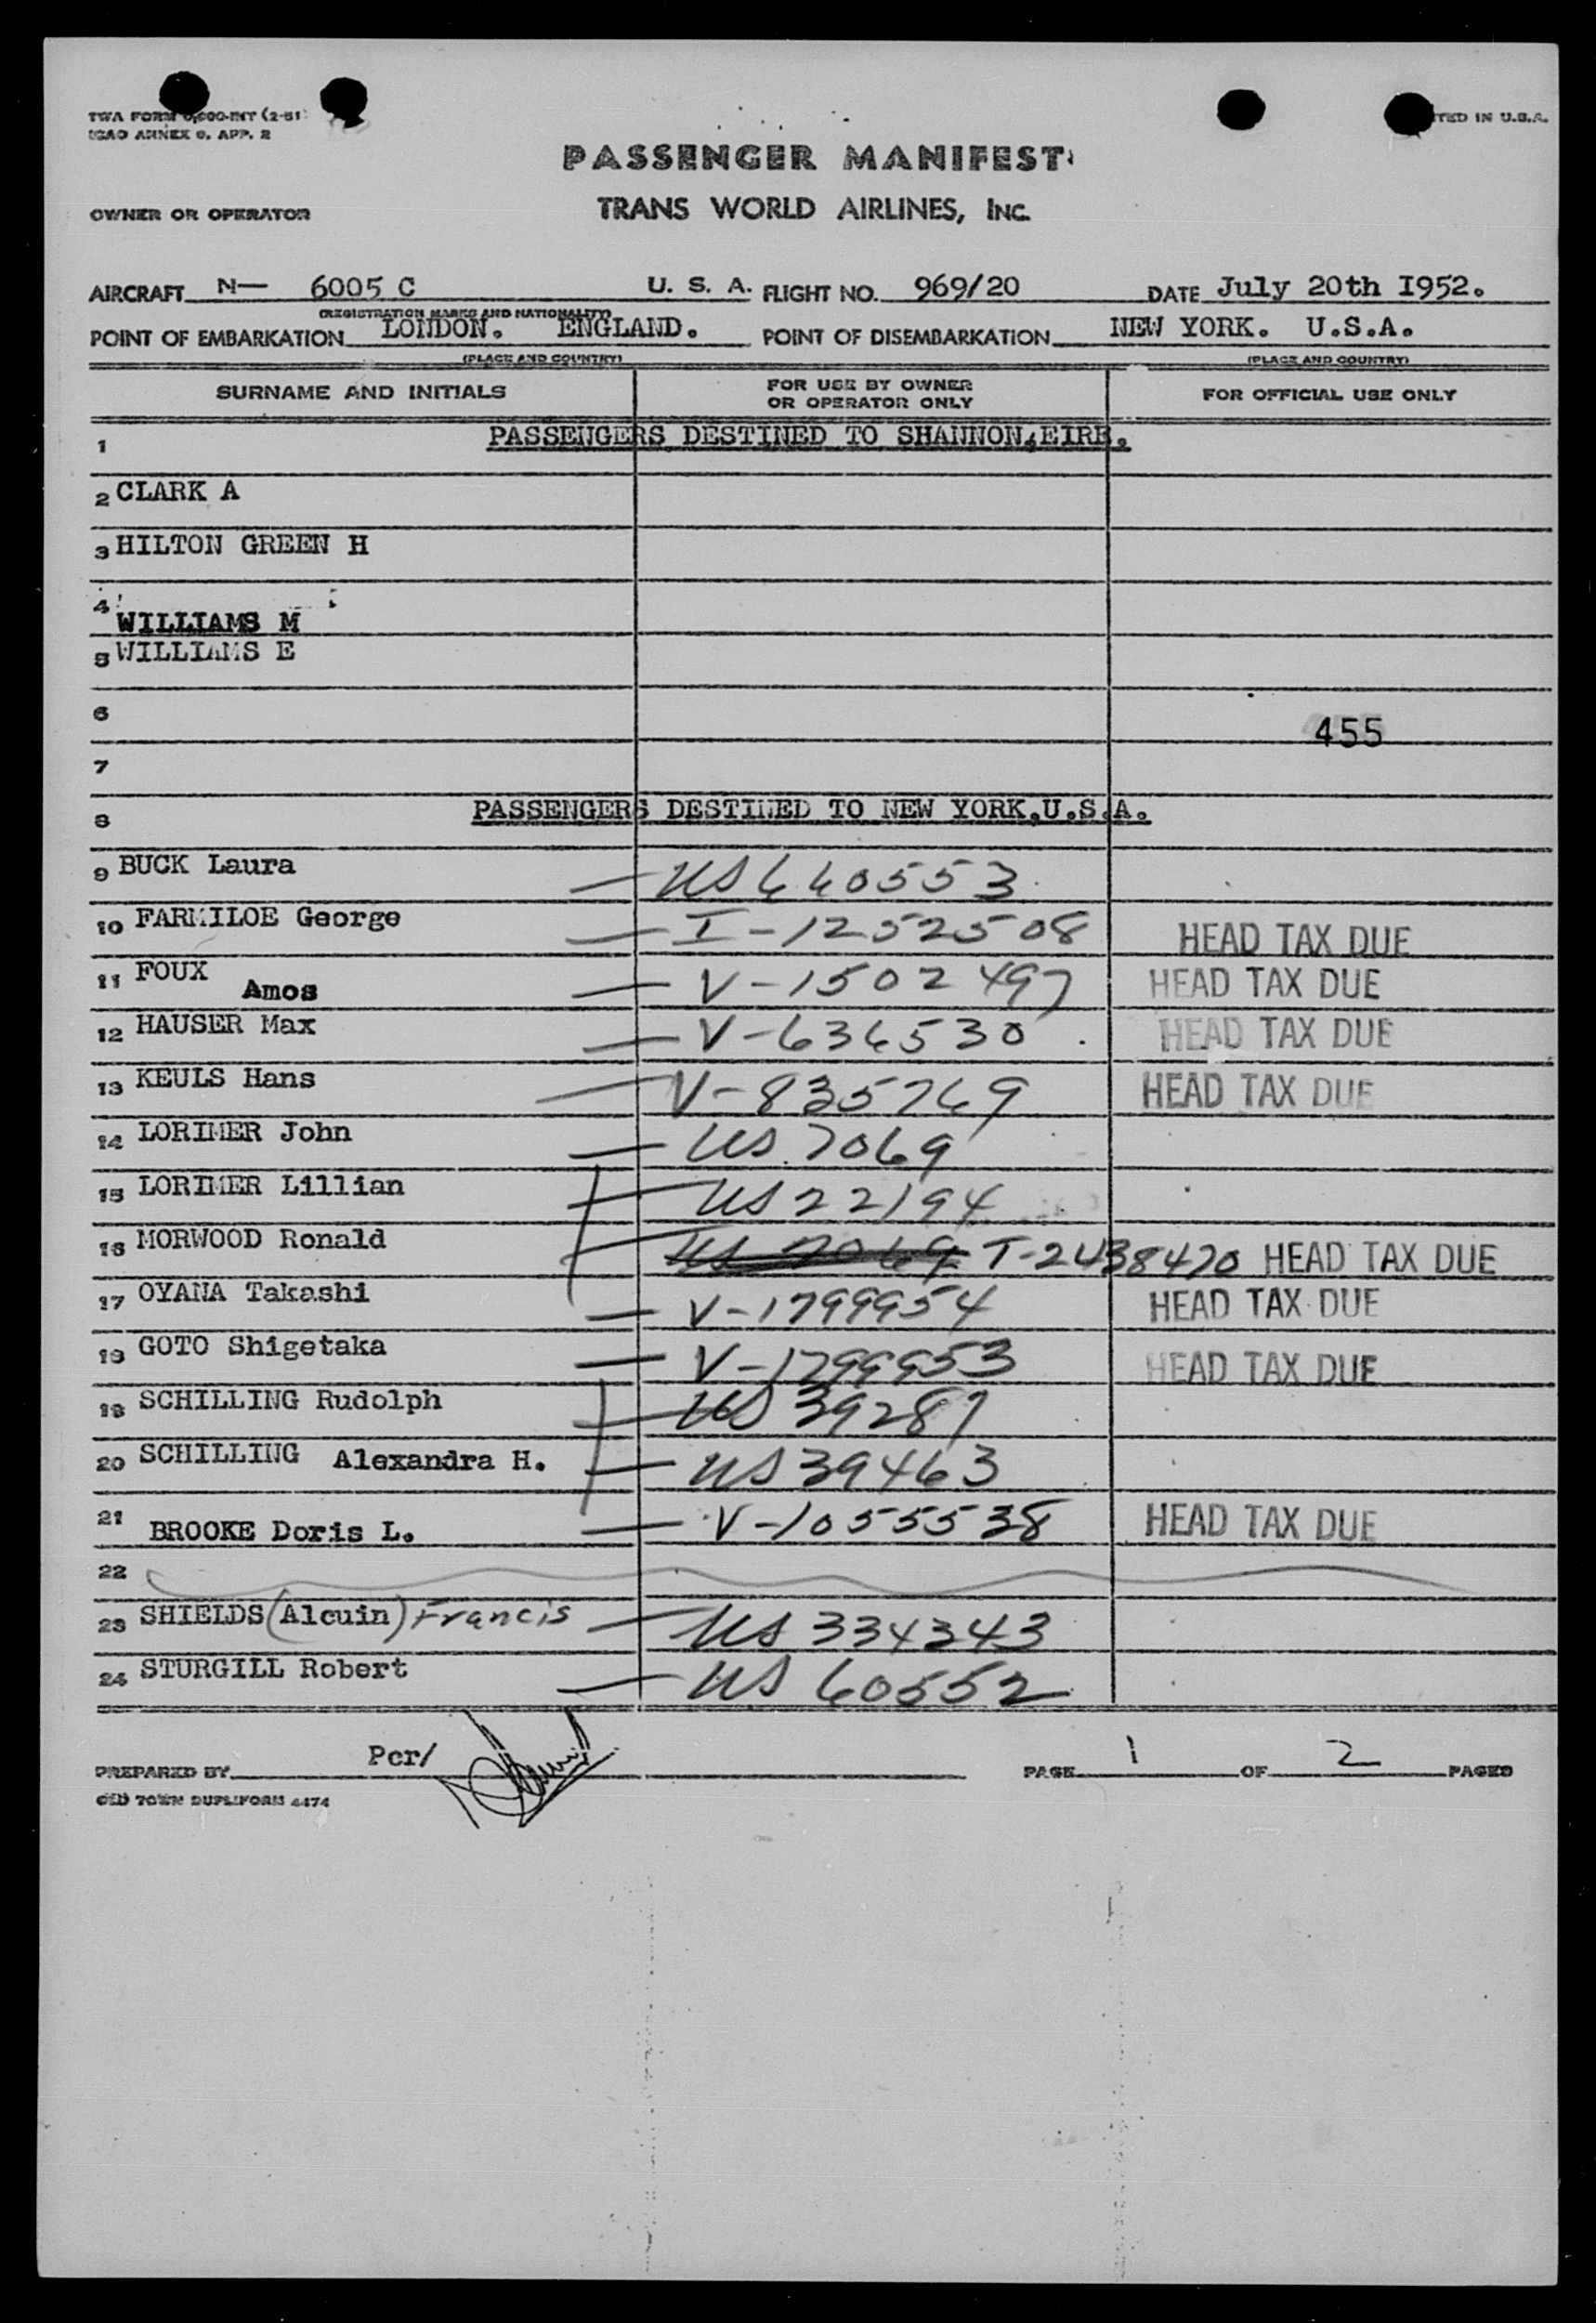 TWA FORM (2-51)
ICAO ANNEX 9, APP. 2
IN U.S.A.
PASSENGER MANIFEST
OWNER OR OPERATOR TRANS WORLD AIRLINES, INC.
AIRCRAFT N— 6005 C U. S. A. FLIGHT NO. 969/20 DATE July 20th I952.
(REGISTRATION MARKS AND NATIONALITY)
POINT OF EMBARKATION LONDON. ENGLAND. POINT OF DISEMBARKATION NEW YORK. U.S.A.
(PLACE AND COUNTRY) (PLACE AND COUNTRY)
SURNAME AND INITIALS FOR USE BY OWNER OR OPERATOR ONLY FOR OFFICIAL USE ONLY
1 PASSENGERS DESTINED TO SHANNON,EIRE.
2 CLARK A
3 HILTON GREEN H
4 WILLIAMS M
5 WILLIAMS E
6 455
7
8 PASSENGERS DESTINED TO NEW YORK.U.S.A.
9 BUCK Laura — US 640553
10 FARMILOE George — I-1252508 HEAD TAX DUE
11 FOUX Amos — V-1502497 HEAD TAX DUE
12 HAUSER Max — V-636530 HEAD TAX DUE
13 KEULS Hans — V-835769 HEAD TAX DUE
14 LORIMER John — US 7069
15 LORIMER Lillian — US 22194
16 MORWOOD Ronald — US 7069 T-2438470 HEAD TAX DUE
17 OYAMA Takashi — V-1799954 HEAD TAX DUE
18 GOTO Shigetaka — V-1799953 HEAD TAX DUE
19 SCHILLING Rudolph — US 39287
20 SCHILLING Alexandra H. — US 39463
21 BROOKE Doris L. — V-1055538 HEAD TAX DUE
22
23 SHIELDS (Alcuin) Francis — US 334343
24 STURGILL Robert — US 60552
PREPARED BY Per/ PAGE 1 OF 2 PAGES
OLD TOWN DUPLIFORM 4474